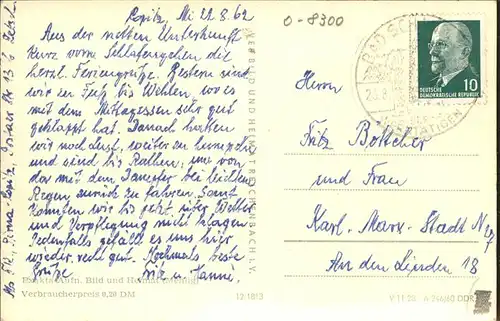 Copitz, Mi 22.8.62
Aus der netten Unterkunft
kurz vorm Schlafengehen die
herzl. Feriengrüße. Gestern sind
wir zu Fuß bis Wehlen, wo es
mit dem Mittagessen sehr gut
geklappt hat. Danach hatten
wir noch Lust, weiter zu
und sind bis Rathen, um von
da mit dem Dampfer bei leichtem
Regen zurück zu fahren. Sonst
konnten wir bis jetzt über Wetter
und Verpflegung nicht klagen.
Jedenfalls gefällt es uns hier
wieder recht gut. Nochmals beste
Grüße und Hanne.
VEB BILD UND HEIMAT REICHENBACH I. V.
Bild und Heimat
Verbraucherpreis 0,20 DM
12/1813
0-8300
BAD
DEUTSCHE
DEMOKRATISCHE REPUBLIK
10
Herrn
Fritz Böttcher
und Frau
Karl-Marx-Stadt
An den Linden 18
V 11 28
DDR